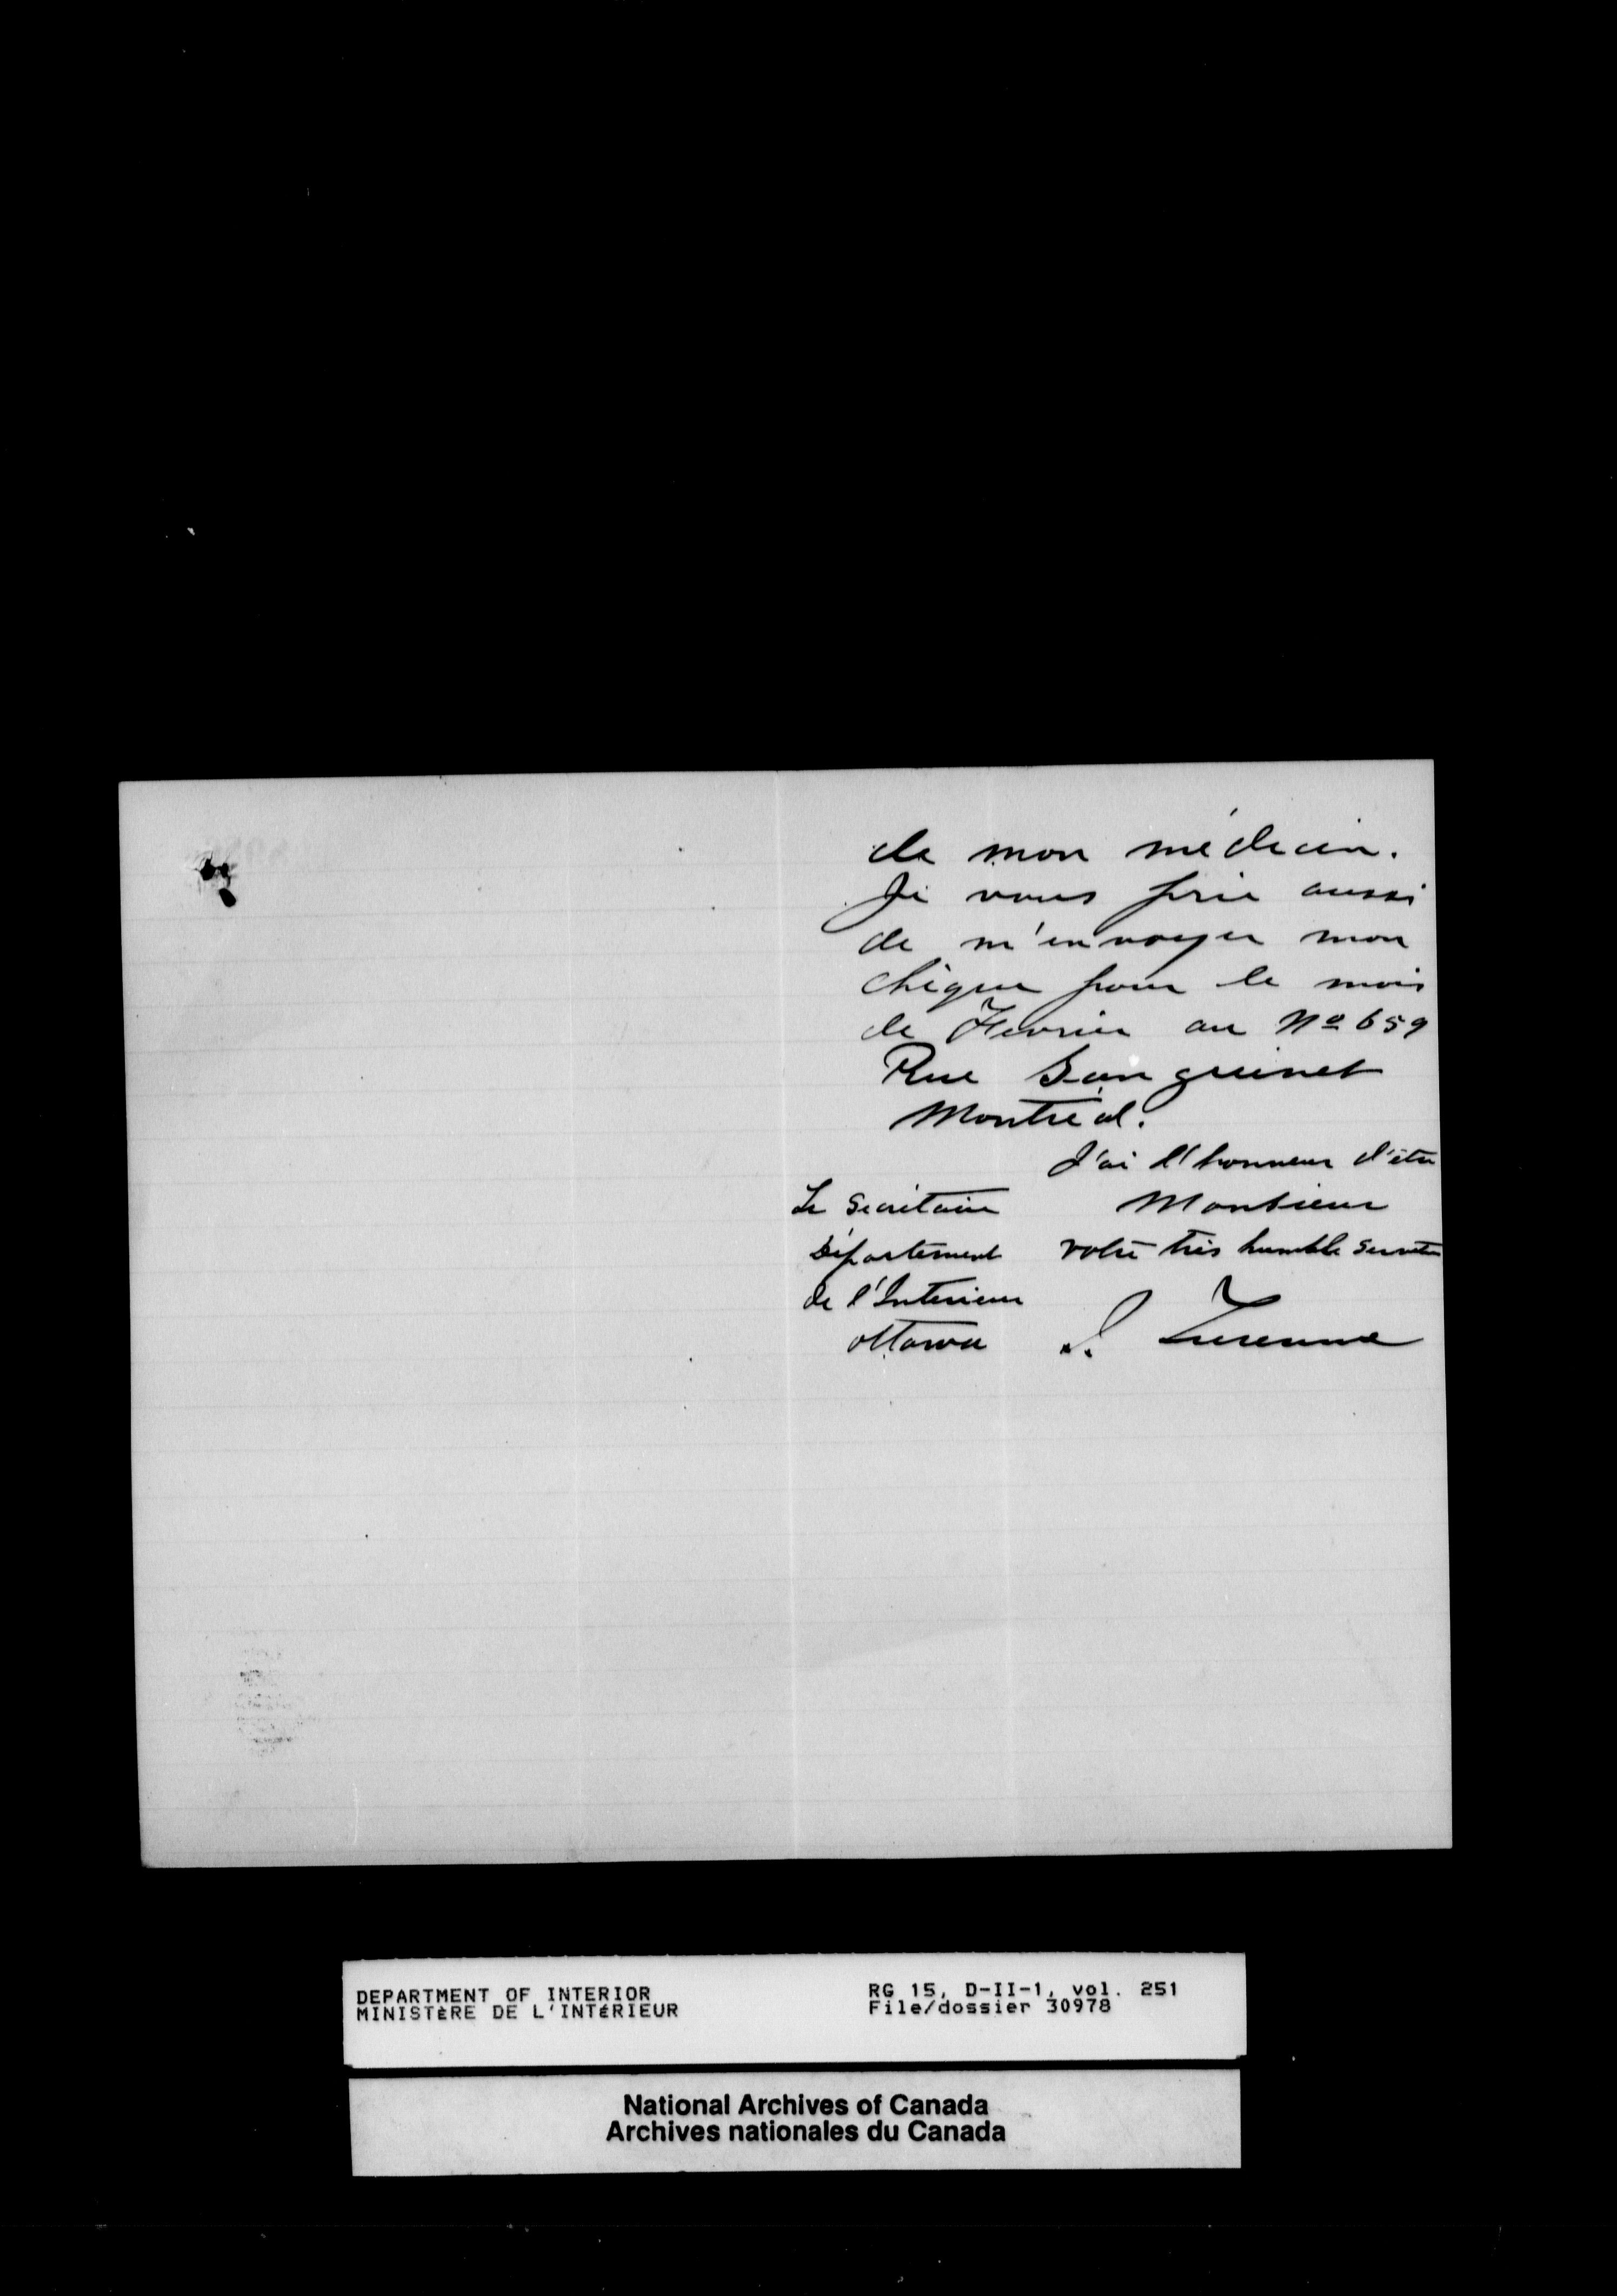 de mon médecin.
Je vous prie aussi
de m'envoyer mon
chèque pour le mois
de Fevrier au No 659
Rue Sanguinet
Montréal.
J'ai l'honneur d'être
Monsieur
votre très humble
Le Secrétaire
Département
de l'Interieur
Ottawa
Turenne
DEPARTMENT OF INTERIOR
MINISTÈRE DE L'INTÉRIEUR
RG 15, D-II-1, vol. 251
File/dossier 30978
National Archives of Canada
Archives nationales du Canada